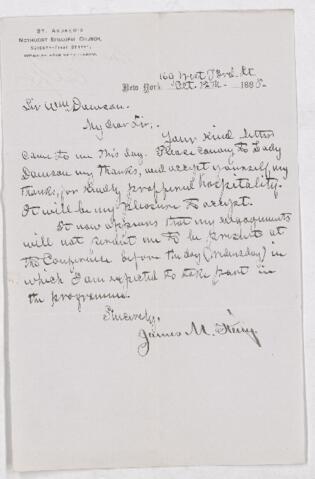 ST. ANDREW'S
METHODIST EPISCOPAL CHURCH,
SEVENTY-FIRST STREET,
160 West 73rd. St
New York Oct. 12th 1888.
Sir Wm Dawson.
My dear Sir;
Your kind letter
came to me this day. Please convey to Lady
Dawson my thanks, and accept yourself my
thanks, for kindly proffered hospitality.
It will be my pleasure to accept.
It now appears that my engagements
will not permit me to be present at
the Conference before the day (Wednesday) in
which I am expected to take part in
the programme.
Sincerely,
James M. King.